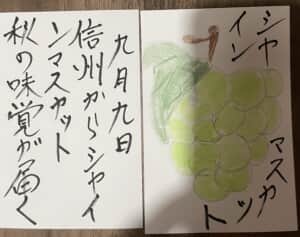 九月九日
信州からシャイ
ンマスカット
秋の味覚が届く
シャ
イン
マスカ
ット